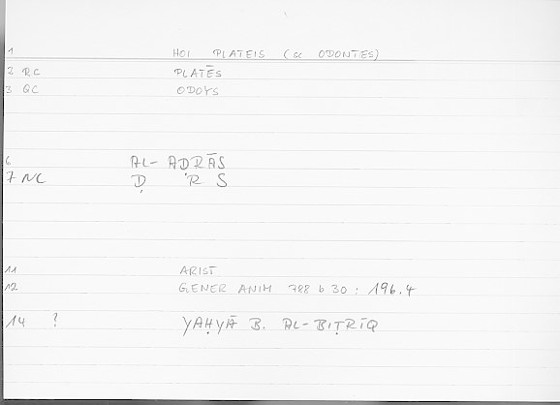 1 HOI PLATEIS (sc ODONTES)
2 RC PLATĒS
3 GC ODOYS
6 AL- AḌRĀS
7 NC Ḍ R S
11 ARIST
12 GENER ANIM 788 b 30 : 196.4
14 ? YAḤYĀ B. AL-BIṬRĪQ